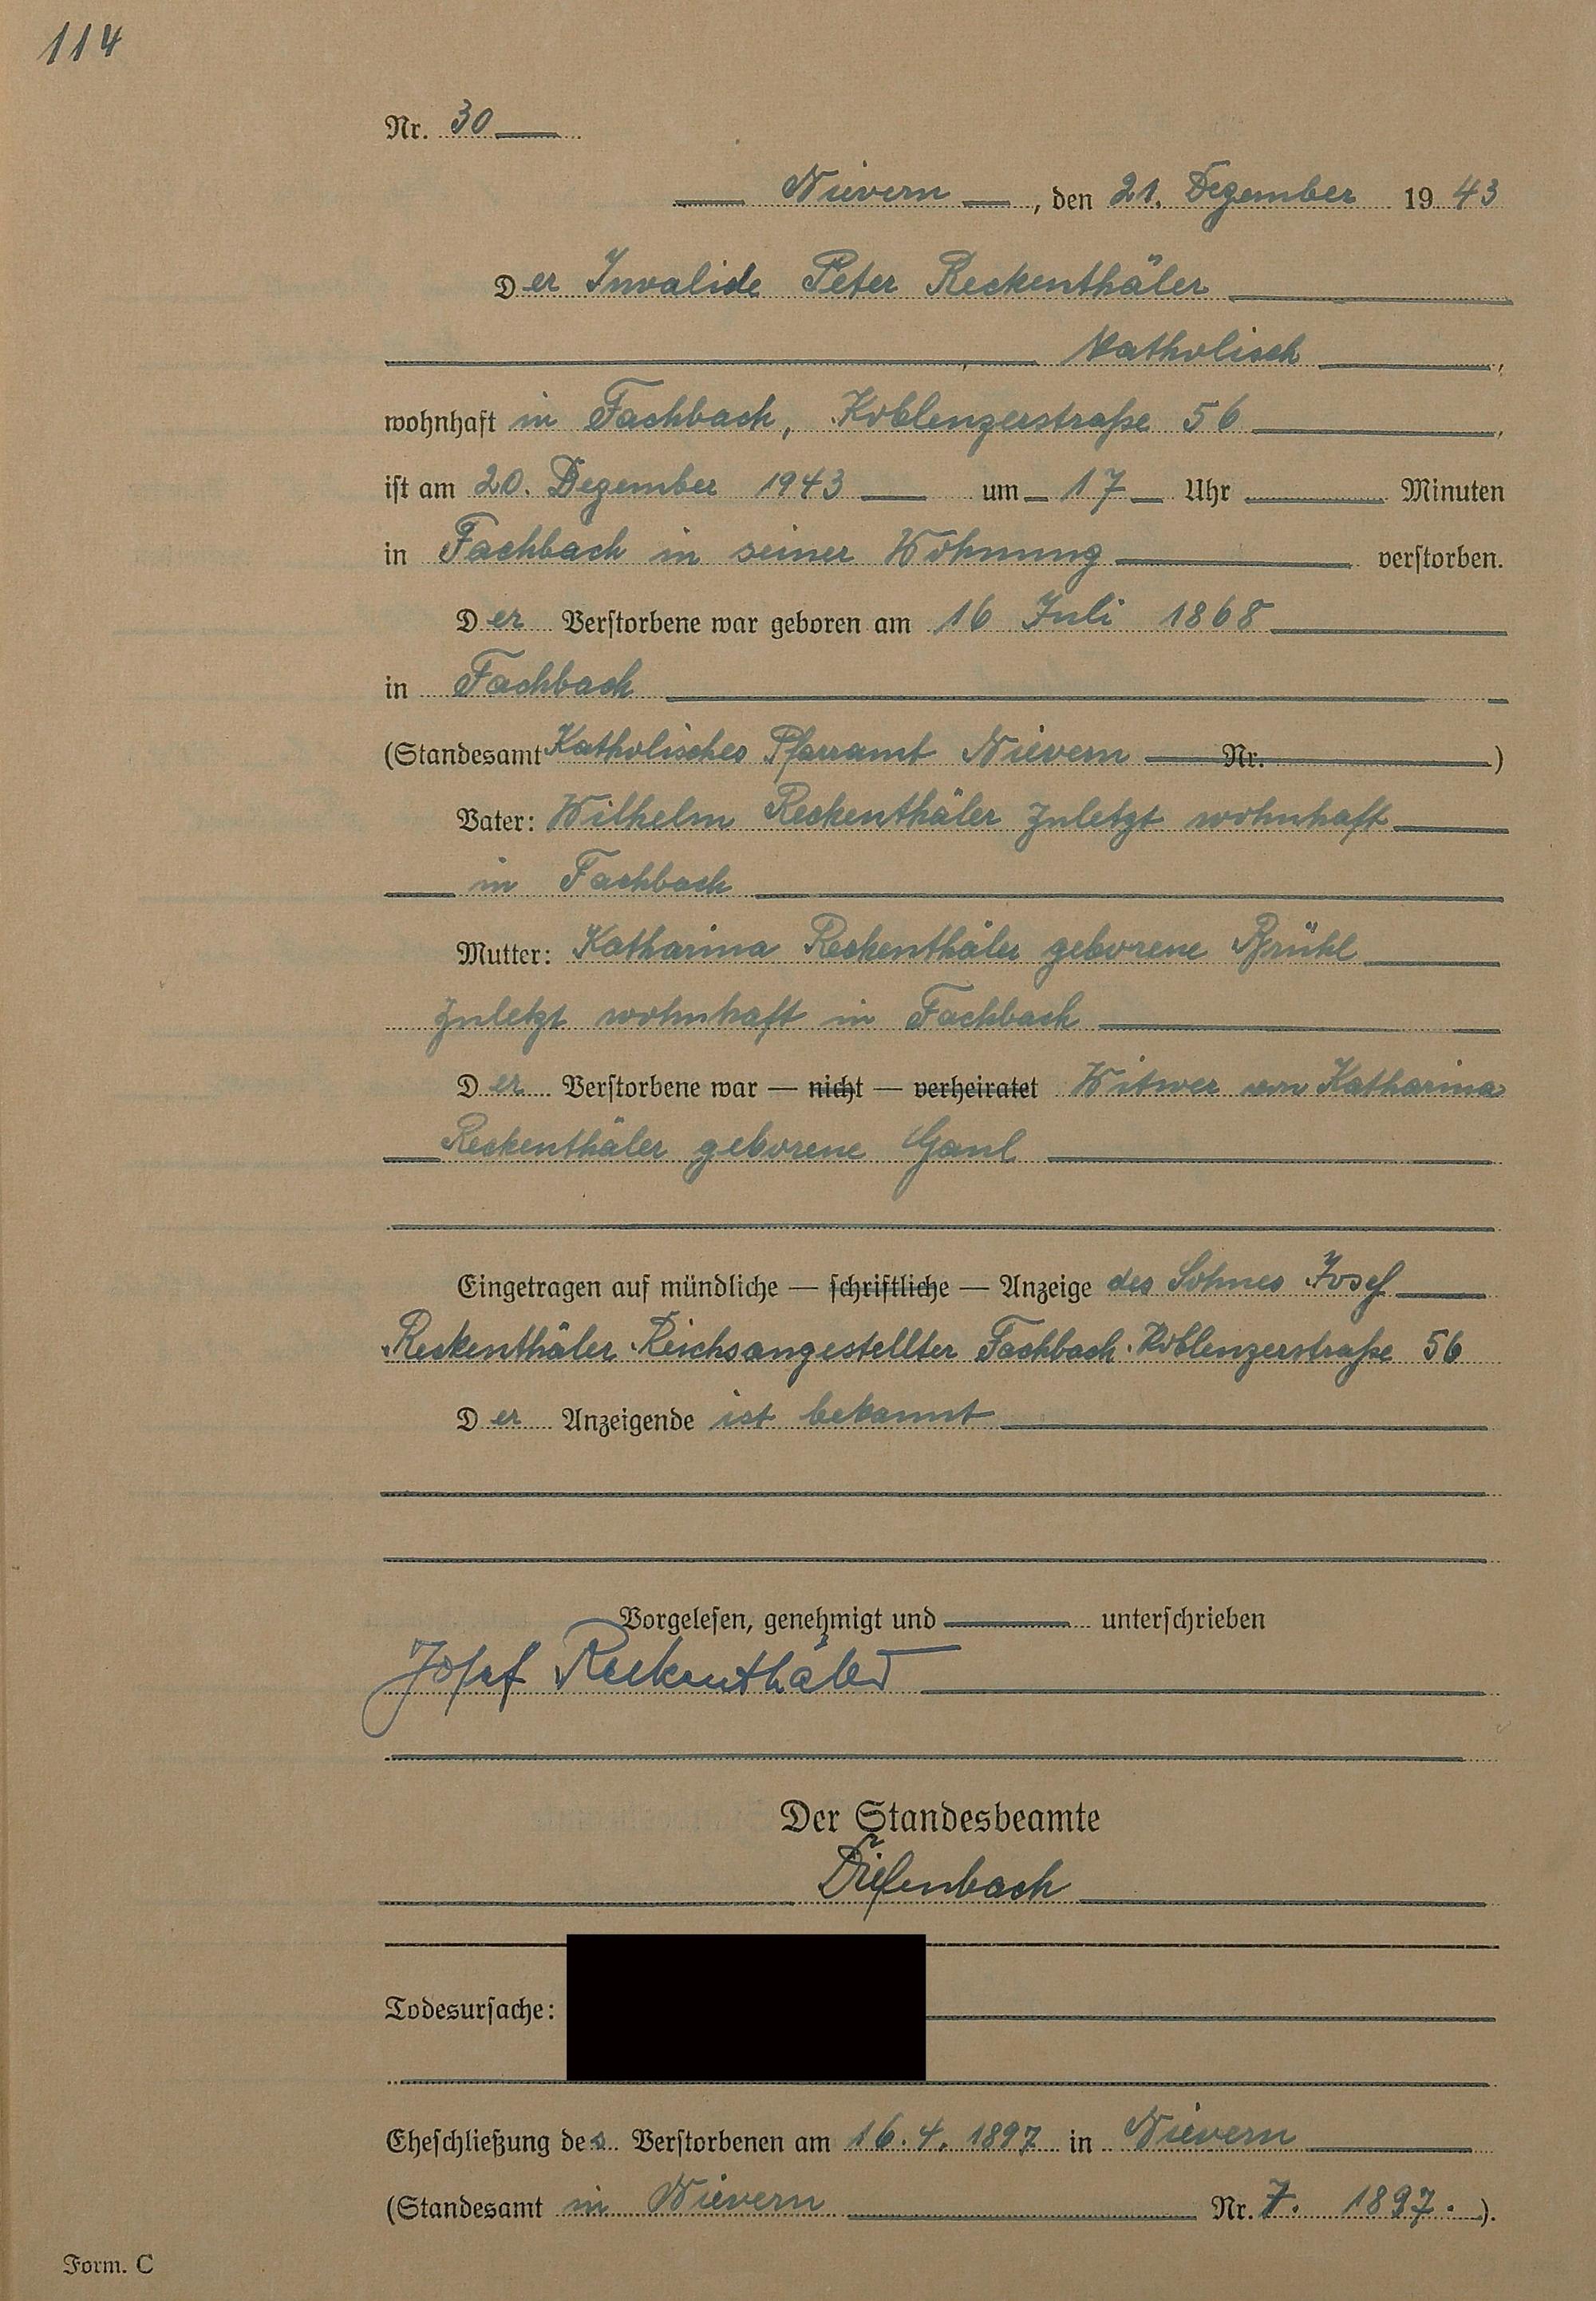 114
Nr. 30
Nievern, den 21. Dezember 1943
Der Invalide Peter Reckenthäler
katholisch,
wohnhaft in Fachbach, Koblenzerstraße 56,
ist am 20. Dezember 1943 um 17 Uhr Minuten
in Fachbach in seiner Wohnung verstorben.
Der Verstorbene war geboren am 16 Juli 1868
in Fachbach
(Standesamt Katholisches Pfarramt Nievern Nr. )
Vater: Wilhelm Reckenthäler zuletzt wohnhaft
in Fachbach
Mutter: Katharina Reckenthäler geborene Brühl
zuletzt wohnhaft in Fachbach
Der Verstorbene war — nicht — verheiratet Witwer von Katharina
Reckenthäler geborene Gaul
Eingetragen auf mündliche — schriftliche — Anzeige des Sohnes Josef
Reckenthäler Reichsangestellter Fachbach Koblenzerstraße 56
Der Anzeigende ist bekannt
Vorgelesen, genehmigt und unterschrieben
Josef Reckenthäler
Der Standesbeamte
Diefenbach
Todesursache:
Eheschließung des Verstorbenen am 16.4.1897 in Nievern
(Standesamt in Nievern Nr. 7. 1897.).
Form. C